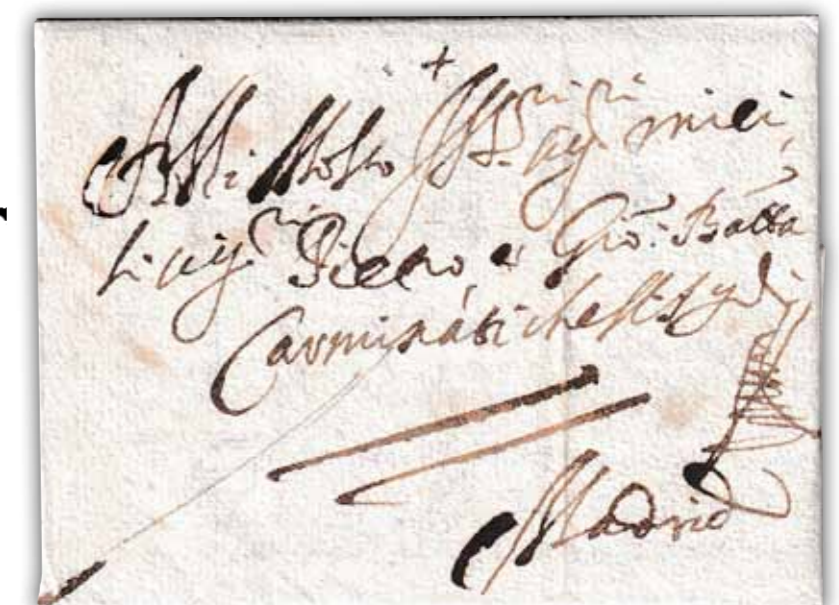 +
Alli Molto Ill.ri Sig.ri miei
li Sig.ri Pietro, e Gio: Batta
Carminati che Iddio g.di
Madrid